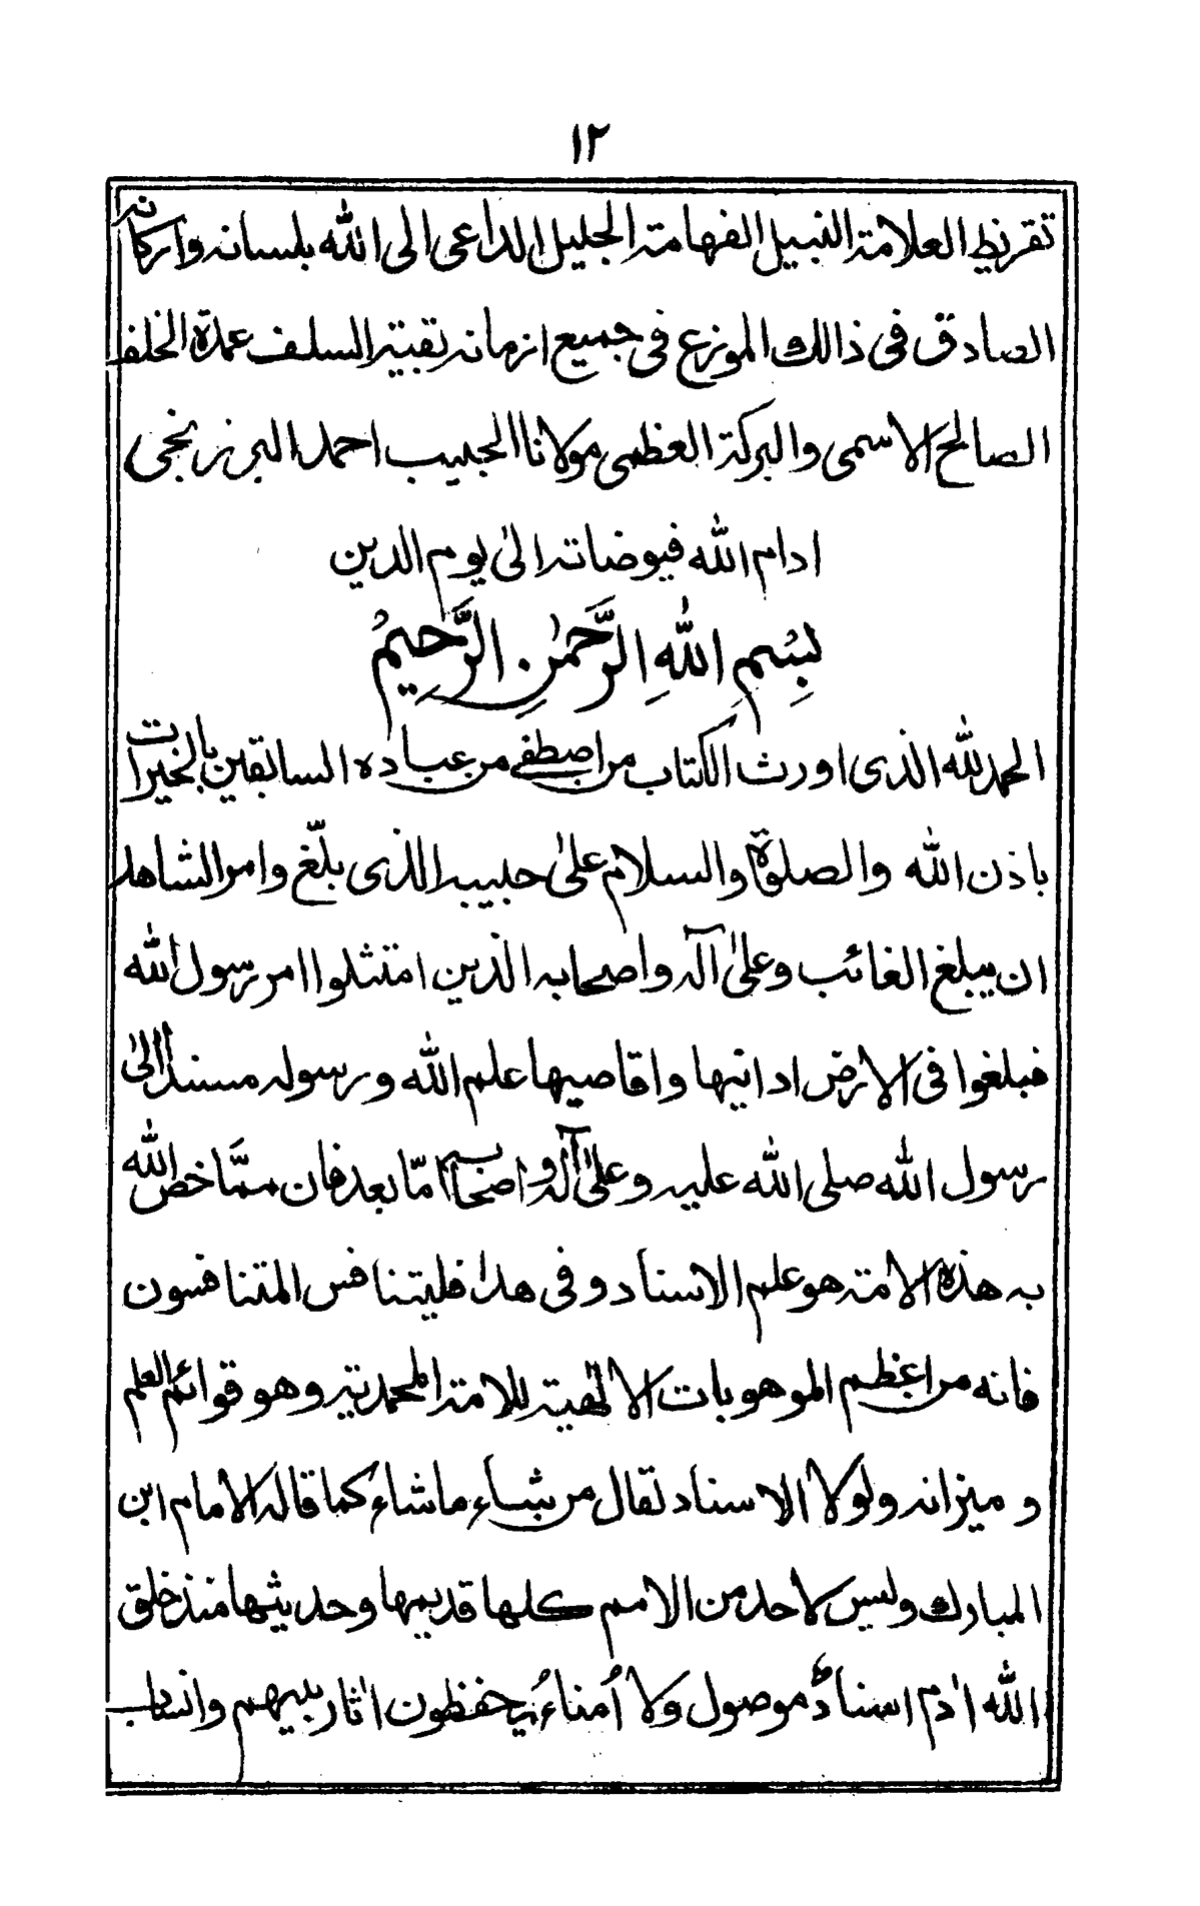 ١٢
تقريظ العلامة النبيل الفهامة الجليل الداعى الى الله بلسانه واركانه
الصادق فى ذالك الموزع فى جميع ازمانه بقية السلف عمدة الخلف
الصالح الاسمى والبركة العظمى مولانا الحبيب احمد البرزنجى
ادام الله فيوضاته الىٰ يوم الدين
بِسْمِ اللهِ الرَّحْمٰنِ الرَّحِيمْ
الحمد لله الذى اورث الكتاب من اصطفى من عباده السابقين بالخيرات
باذن الله والصلوة والسلام علىٰ حبيبه الذى بلّغ وامر الشاهد
ان يبلغ الغائب وعلىٰ آله واصحابه الذين امتثلوا امر رسول الله
فبلغوا فى الارض ادانيها واقاصيها علم الله ورسوله مسندا الىٰ
رسول الله صلى الله عليه وعلىٰ آله واصحابه امّا بعد فان ممّا خص الله
به هذه الامة هو علم الاسناد وفى هذا فليتنافس المتنافسون
فانه من اعظم الموهوبات الالٰهية للامة المحمدية وهو قوائم العلم
وميزانه ولولا الاسناد لقال من شاء ماشاء كما قاله الامام ابن
المبارك وليس لاحد من الامم كلها قديمها وحديثها منذ خلق
الله اٰدم اسنادٌ موصول ولا اُمناءُ يحفظون اٰثار نبيهم وانساب